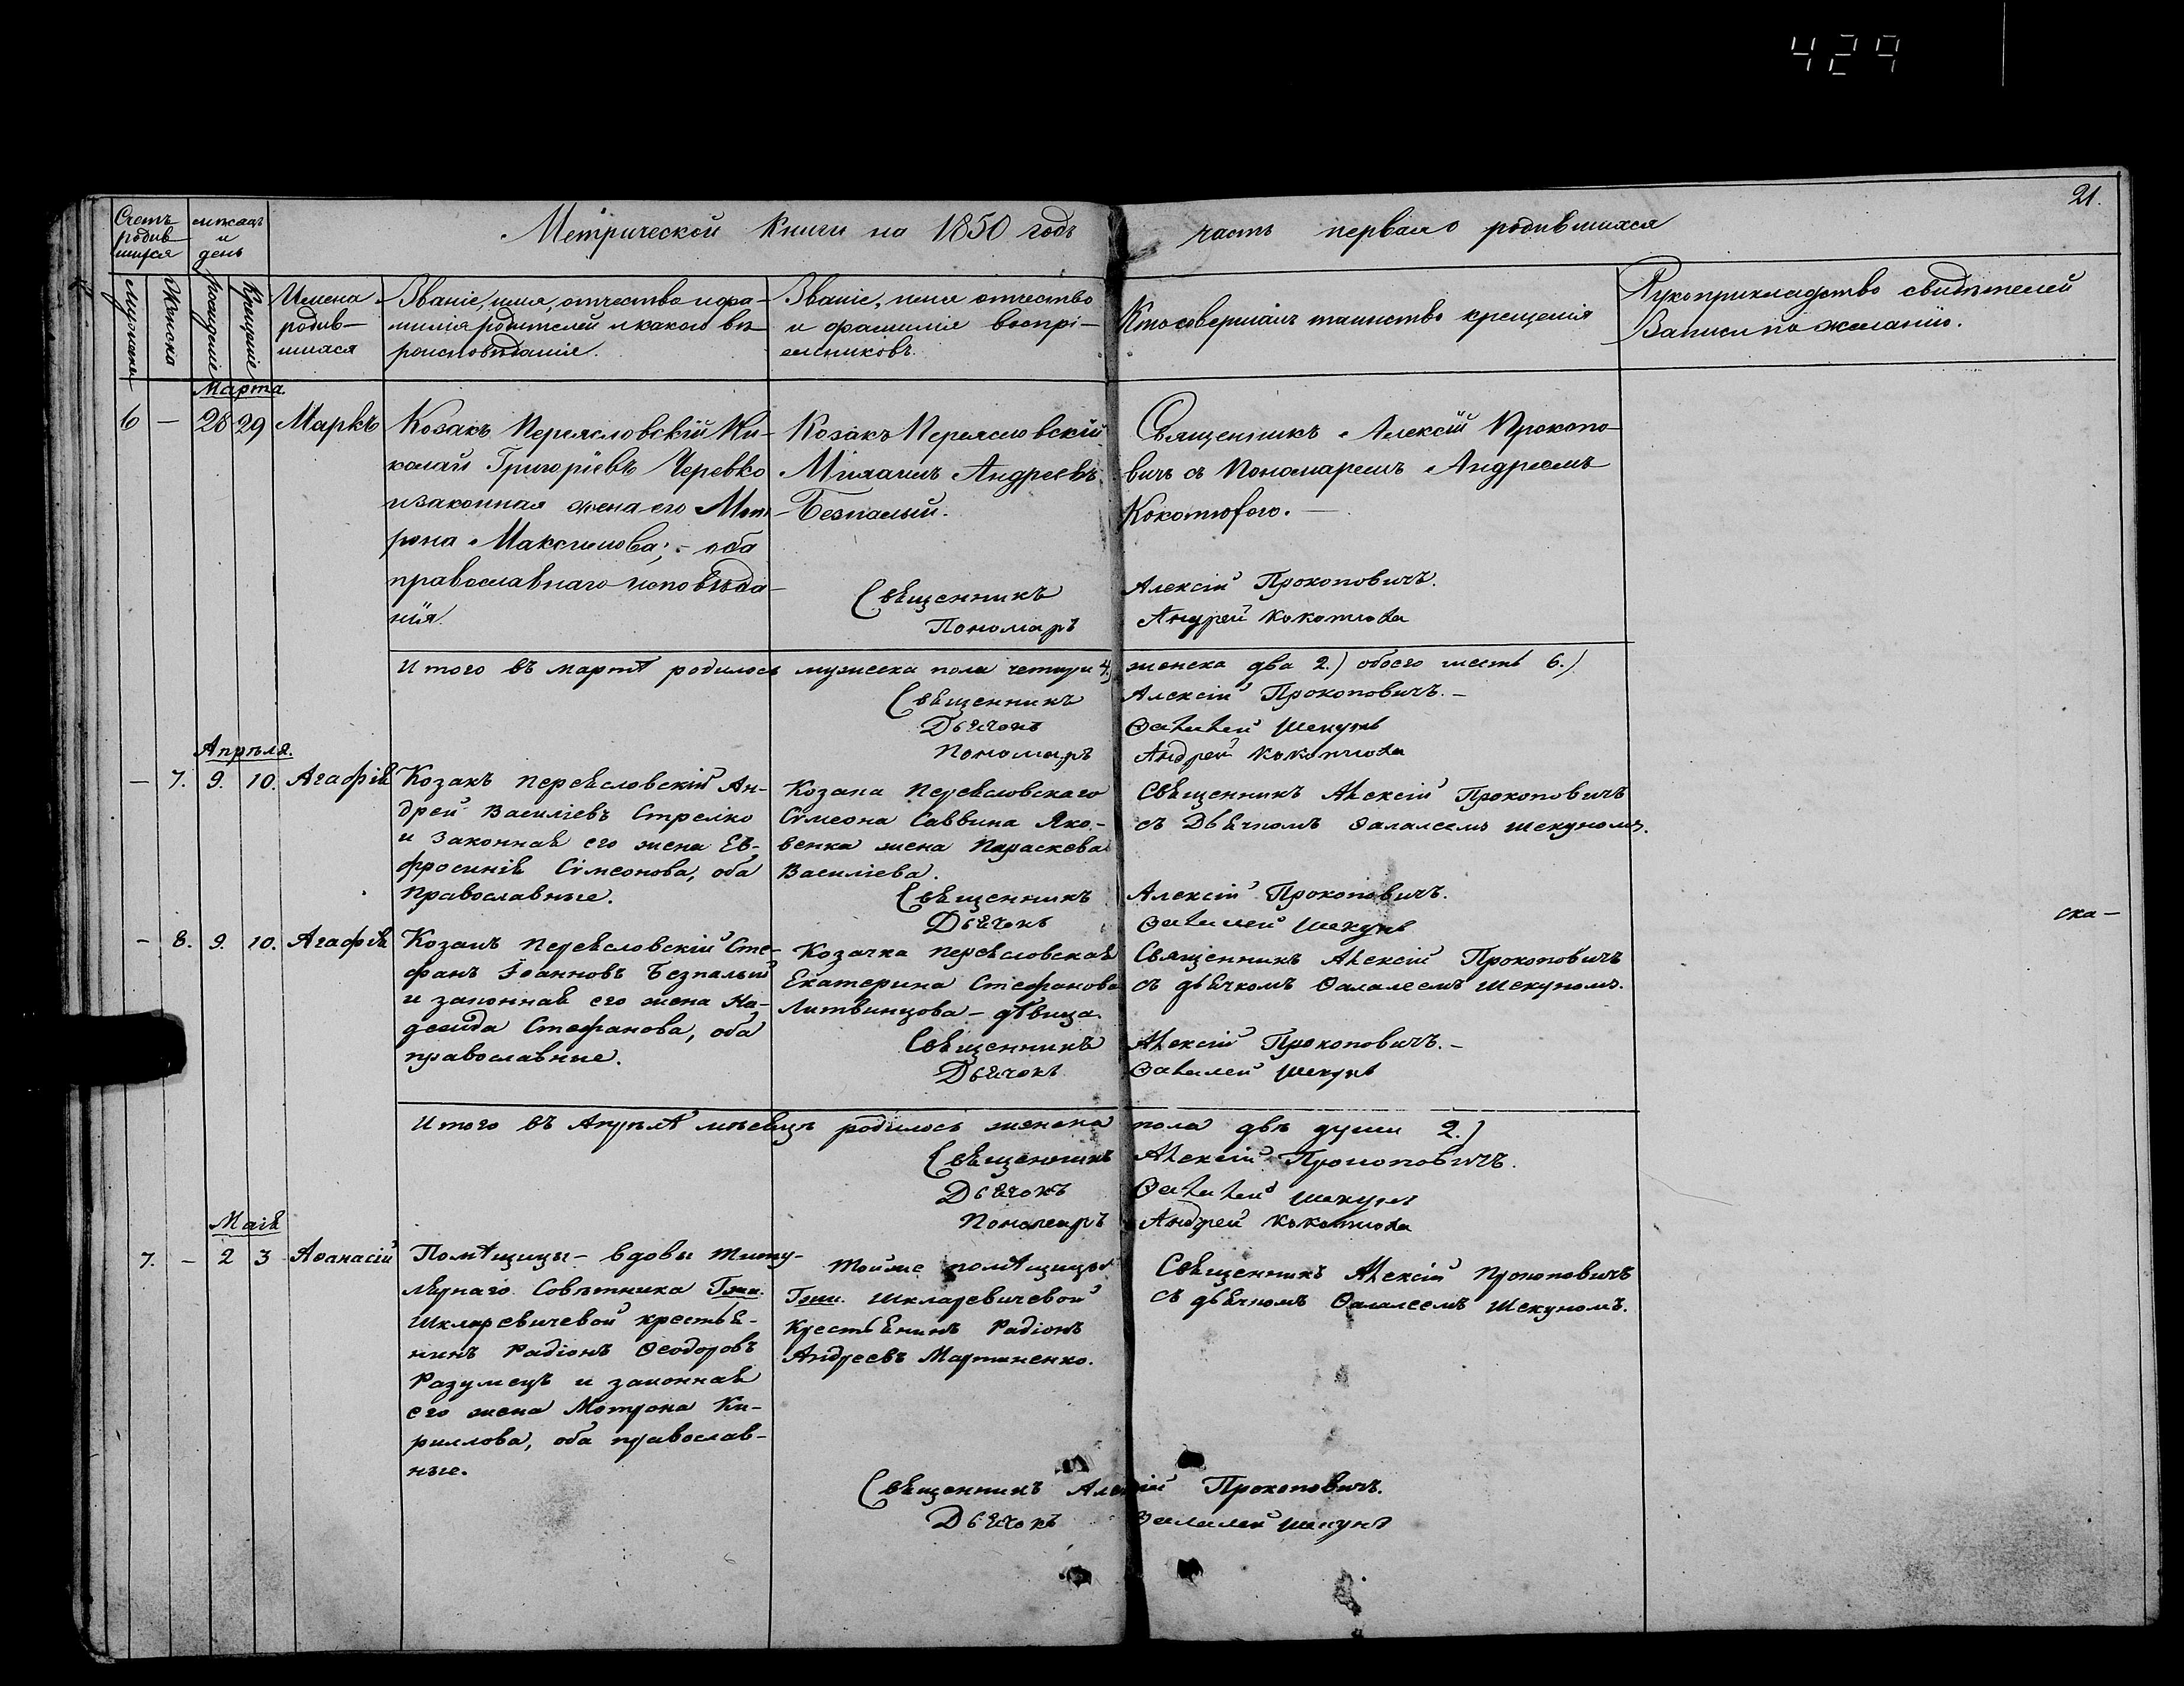 429
21.
Метрической книги на 1850 годъ часть первая о родившихся
Счетъ
родив-
шихся
мѣсяцъ
и
день
Мужеска
Женска
рожденіе
Крещеніе
Имена
родив-
шихся
Званіе, имя, отчество и фа-
милія родителей и какого вѣ-
роисповѣданія.
Званіе, имя отчество
и фамилія воспрі-
емниковъ.
Кто совершалъ таинство крещенія
Рукоприкладство свидѣтелей
Записи по желанію.
Марта.
6 — 28 29 Маркъ
Козакъ Переясловскій Ни-
колай Григоріевъ Черевко
и законная жена его Мот-
рона Максимова; - оба
православнаго исповѣда-
нія.
Козакъ Переясловскій
Михаилъ Андреевъ
Безпалый.
Священникъ Алексій Прокопо-
вичъ съ Пономаремъ Андреемъ
Кокотюхою. —
Священникъ Алексій Прокоповичъ.
Пономарь Андрей Кокотюха
Итого въ мартѣ родилось мужеска пола четыри 4) женска два 2.) обоего шесть 6.)
Священникъ Алексій Прокоповичъ. —
Дьячокъ Фалалей Шекунъ
Пономарь Андрей Кокотюха
Апрѣля.
— 7. 9. 10. Агафія
Козакъ переясловскій Ан-
дрей Василіевъ Стрелко
и законная его жена Ев-
фросинія Сѵмеонова, оба
православные.
Козака переясловскаго
Сѵмеона Саввина Яко-
венка жена Параскева
Василіева.
Священникъ Алексій Прокоповичъ
съ Дьячкомъ Ѳалалеемъ Шекуномъ.
Священникъ Алексій Прокоповичъ.
Дьячокъ Ѳалалей Шекунъ
ска—
— 8. 9. 10. Агафія
Козакъ переясловскій Сте-
фанъ Іоанновъ Безпалый
и законная его жена На-
дежда Стефанова, оба
православные.
Козачка переясловская
Екатерина Стефанова
Литвинцова — дѣвица.
Священникъ Алексій Прокоповичъ
съ дьячкомъ Ѳалалеемъ Шекуномъ.
Священникъ Алексій Прокоповичъ. —
Дьячокъ Ѳалалей Шекунъ
Итого въ Апрѣлѣ мѣсяцѣ родилось женска пола двѣ души 2.)
Священникъ Алексій Прокоповичъ.
Дьячокъ Ѳалалей Шекунъ
Пономарь Андрей Кокотюха
Маія
7. — 2 3 Аѳанасій
Помѣщицы — вдовы титу-
лярнаго Совѣтника Гжи.
Шкляревичевой крестья-
нинъ Радіонъ Ѳеодоровъ
Разумецъ и законная
его жена Мотрона Ки-
риллова, оба православ-
ные.
Тойже помѣщицы
Гжи. Шкляревичевой
крестьянинъ Радіонъ
Андреевъ Мартиненко.
Священникъ Алексій Прокоповичъ
съ дьячкомъ Ѳалалеемъ Шекуномъ.
Священникъ Алексій Прокоповичъ.
Дьячокъ Ѳалалей Шекунъ